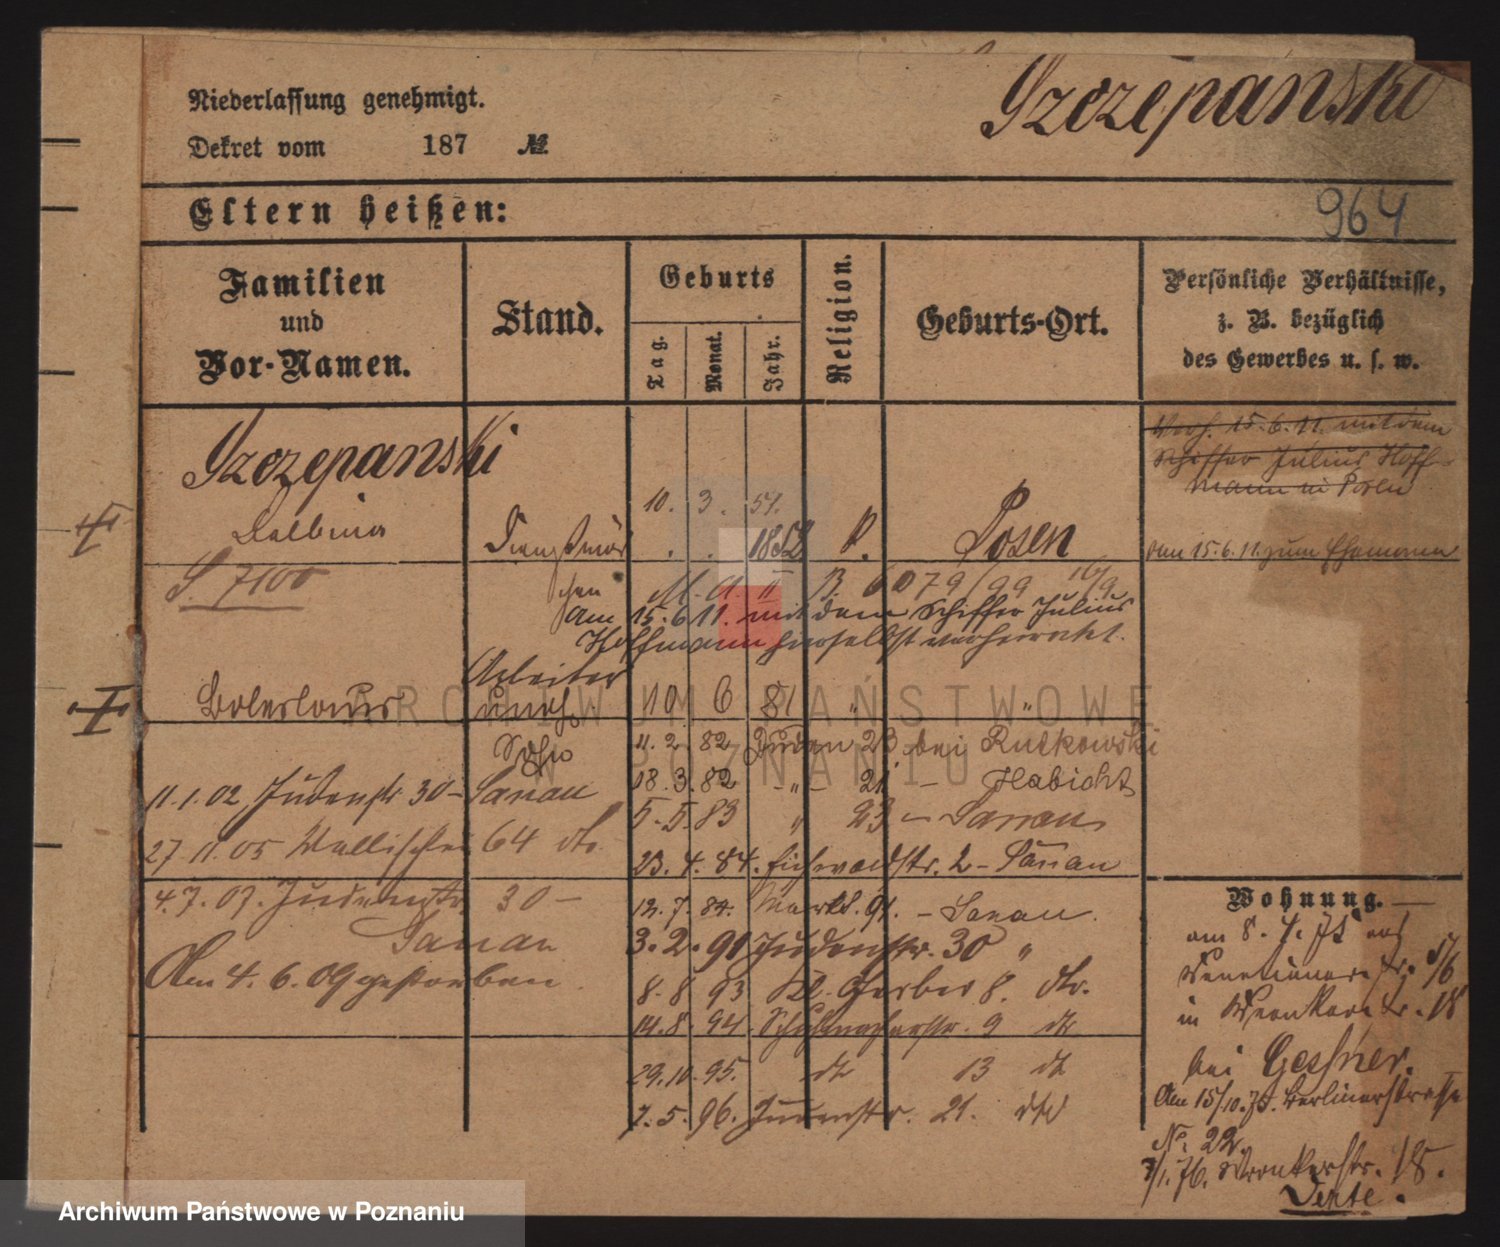 Niederlassung genehmigt.
Dekret vom 187 №.
Szczepanski
964
Eltern heißen:
Familien
und
Vor-Namen.
Stand.
Geburts
Tag.
Monat.
Jahr.
Religion.
Geburts-Ort.
Persönliche Verhältnisse,
z. B. bezüglich
des Gewerbes u. s. w.
Szczepanski
Balbina
S. 7100
Dienstmäd
chen
10. 3. 51.
1852
Posen
Verh. 15.6.11. mit dem
Schiffer Julius Hoff-
mann in Posen
am 15.6.11. zum Ehemann
6079/99 16/9
Am 15.6.11. mit dem Schiffer Julius
Hoffmann hierselbst verheiratet.
Boleslaus
Arbeiter
unehl.
Sohn
10 6 81 " "
11.2.82 Juden 23 bei Rutkowski
18.3.82 - " - 21 - Habicht
5.5.83 " 23 - Sanau
23.4.84. Eichwaldstr. 2 - Sanau
12.7.84. Markt. 91. - Sanau.
3.2.91 Judenstr. 30 "
8.8.93 Kl. Gerber 8. do.
14.8.94. 9 do
29.10.95. do 13 do
7.5.96. Judenstr. 21. do
11.1.02 Judenstr 30 - Sanau
27.11.05 Wallischei 64 do.
4.7.07. Judenstr. 30 -
Sanau
Am 4.6.09 gestorben.
Wohnung.
am 8.4.75 aus
Venetianerstr. 5/6
in Wronkerstr. 18
bei Gessner.
Am 15/10.75. Berlinerstrasse
No. 22.
3/1.76. Wronkerstr. 18.
ARCHIWUM PAŃSTWOWE
W POZNANIU
Archiwum Państwowe w Poznaniu